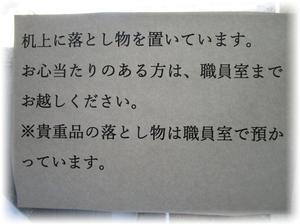 机上に落とし物を置いています。
お心当たりのある方は、職員室まで
お越しください。
※貴重品の落とし物は職員室で預か
っています。